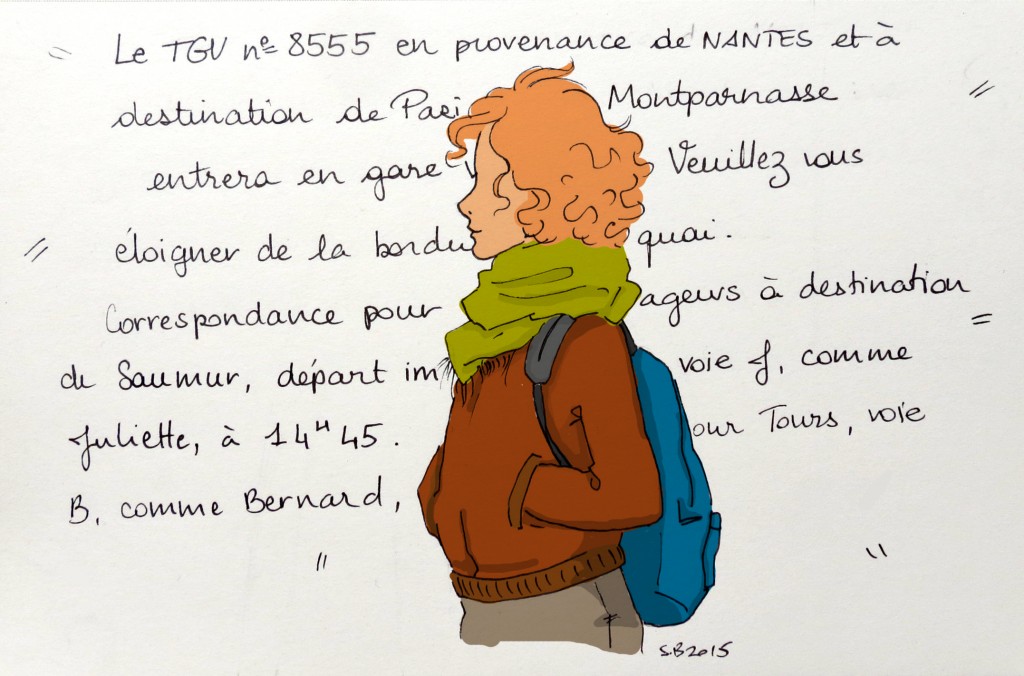 Le TGV n° 8555 en provenance de NANTES et à
destination de Pari Montparnasse
entrera en gare Veuillez vous
éloigner de la bordu quai.
Correspondance pour ageurs à destination
de Saumur, départ im voie J, comme
Juliette, à 14H45. our Tours, voie
B, comme Bernard,
S.B2015